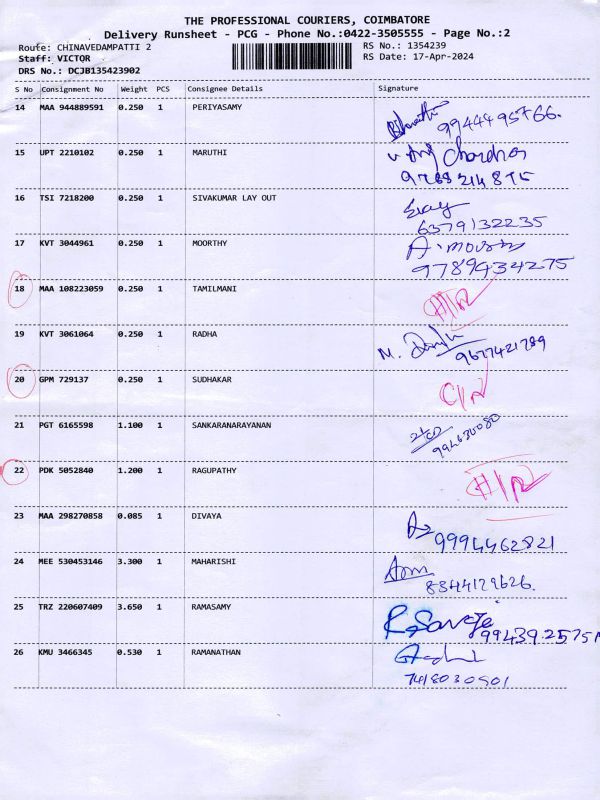 THE PROFESSIONAL COURIERS, COIMBATORE
Delivery Runsheet - PCG - Phone No.:0422-3505555 - Page No.:2
Route: CHINAVEDAMPATTI 2 RS No.: 1354239
Staff: VICTOR RS Date: 17-Apr-2024
DRS No.: DCJB135423902
S No Consignment No Weight PCS Consignee Details Signature
14 MAA 944889591 0.250 1 PERIYASAMY
9944495766.
15 UPT 2210102 0.250 1 MARUTHI Chandra
16 TSI 7218200 0.250 1 SIVAKUMAR LAY OUT
6379132235
17 KVT 3044961 0.250 1 MOORTHY
9789434275
18 MAA 108223059 0.250 1 TAMILMANI
19 KVT 3061064 0.250 1 RADHA M.
9677421789
20 GPM 729137 0.250 1 SUDHAKAR
21 PGT 6165598 1.100 1 SANKARANARAYANAN
22 PDK 5052840 1.200 1 RAGUPATHY
23 MAA 298270858 0.085 1 DIVAYA
9994462821
24 MEE 530453146 3.300 1 MAHARISHI
8344129626.
25 TRZ 220607409 3.650 1 RAMASAMY
26 KMU 3466345 0.530 1 RAMANATHAN
7418030501